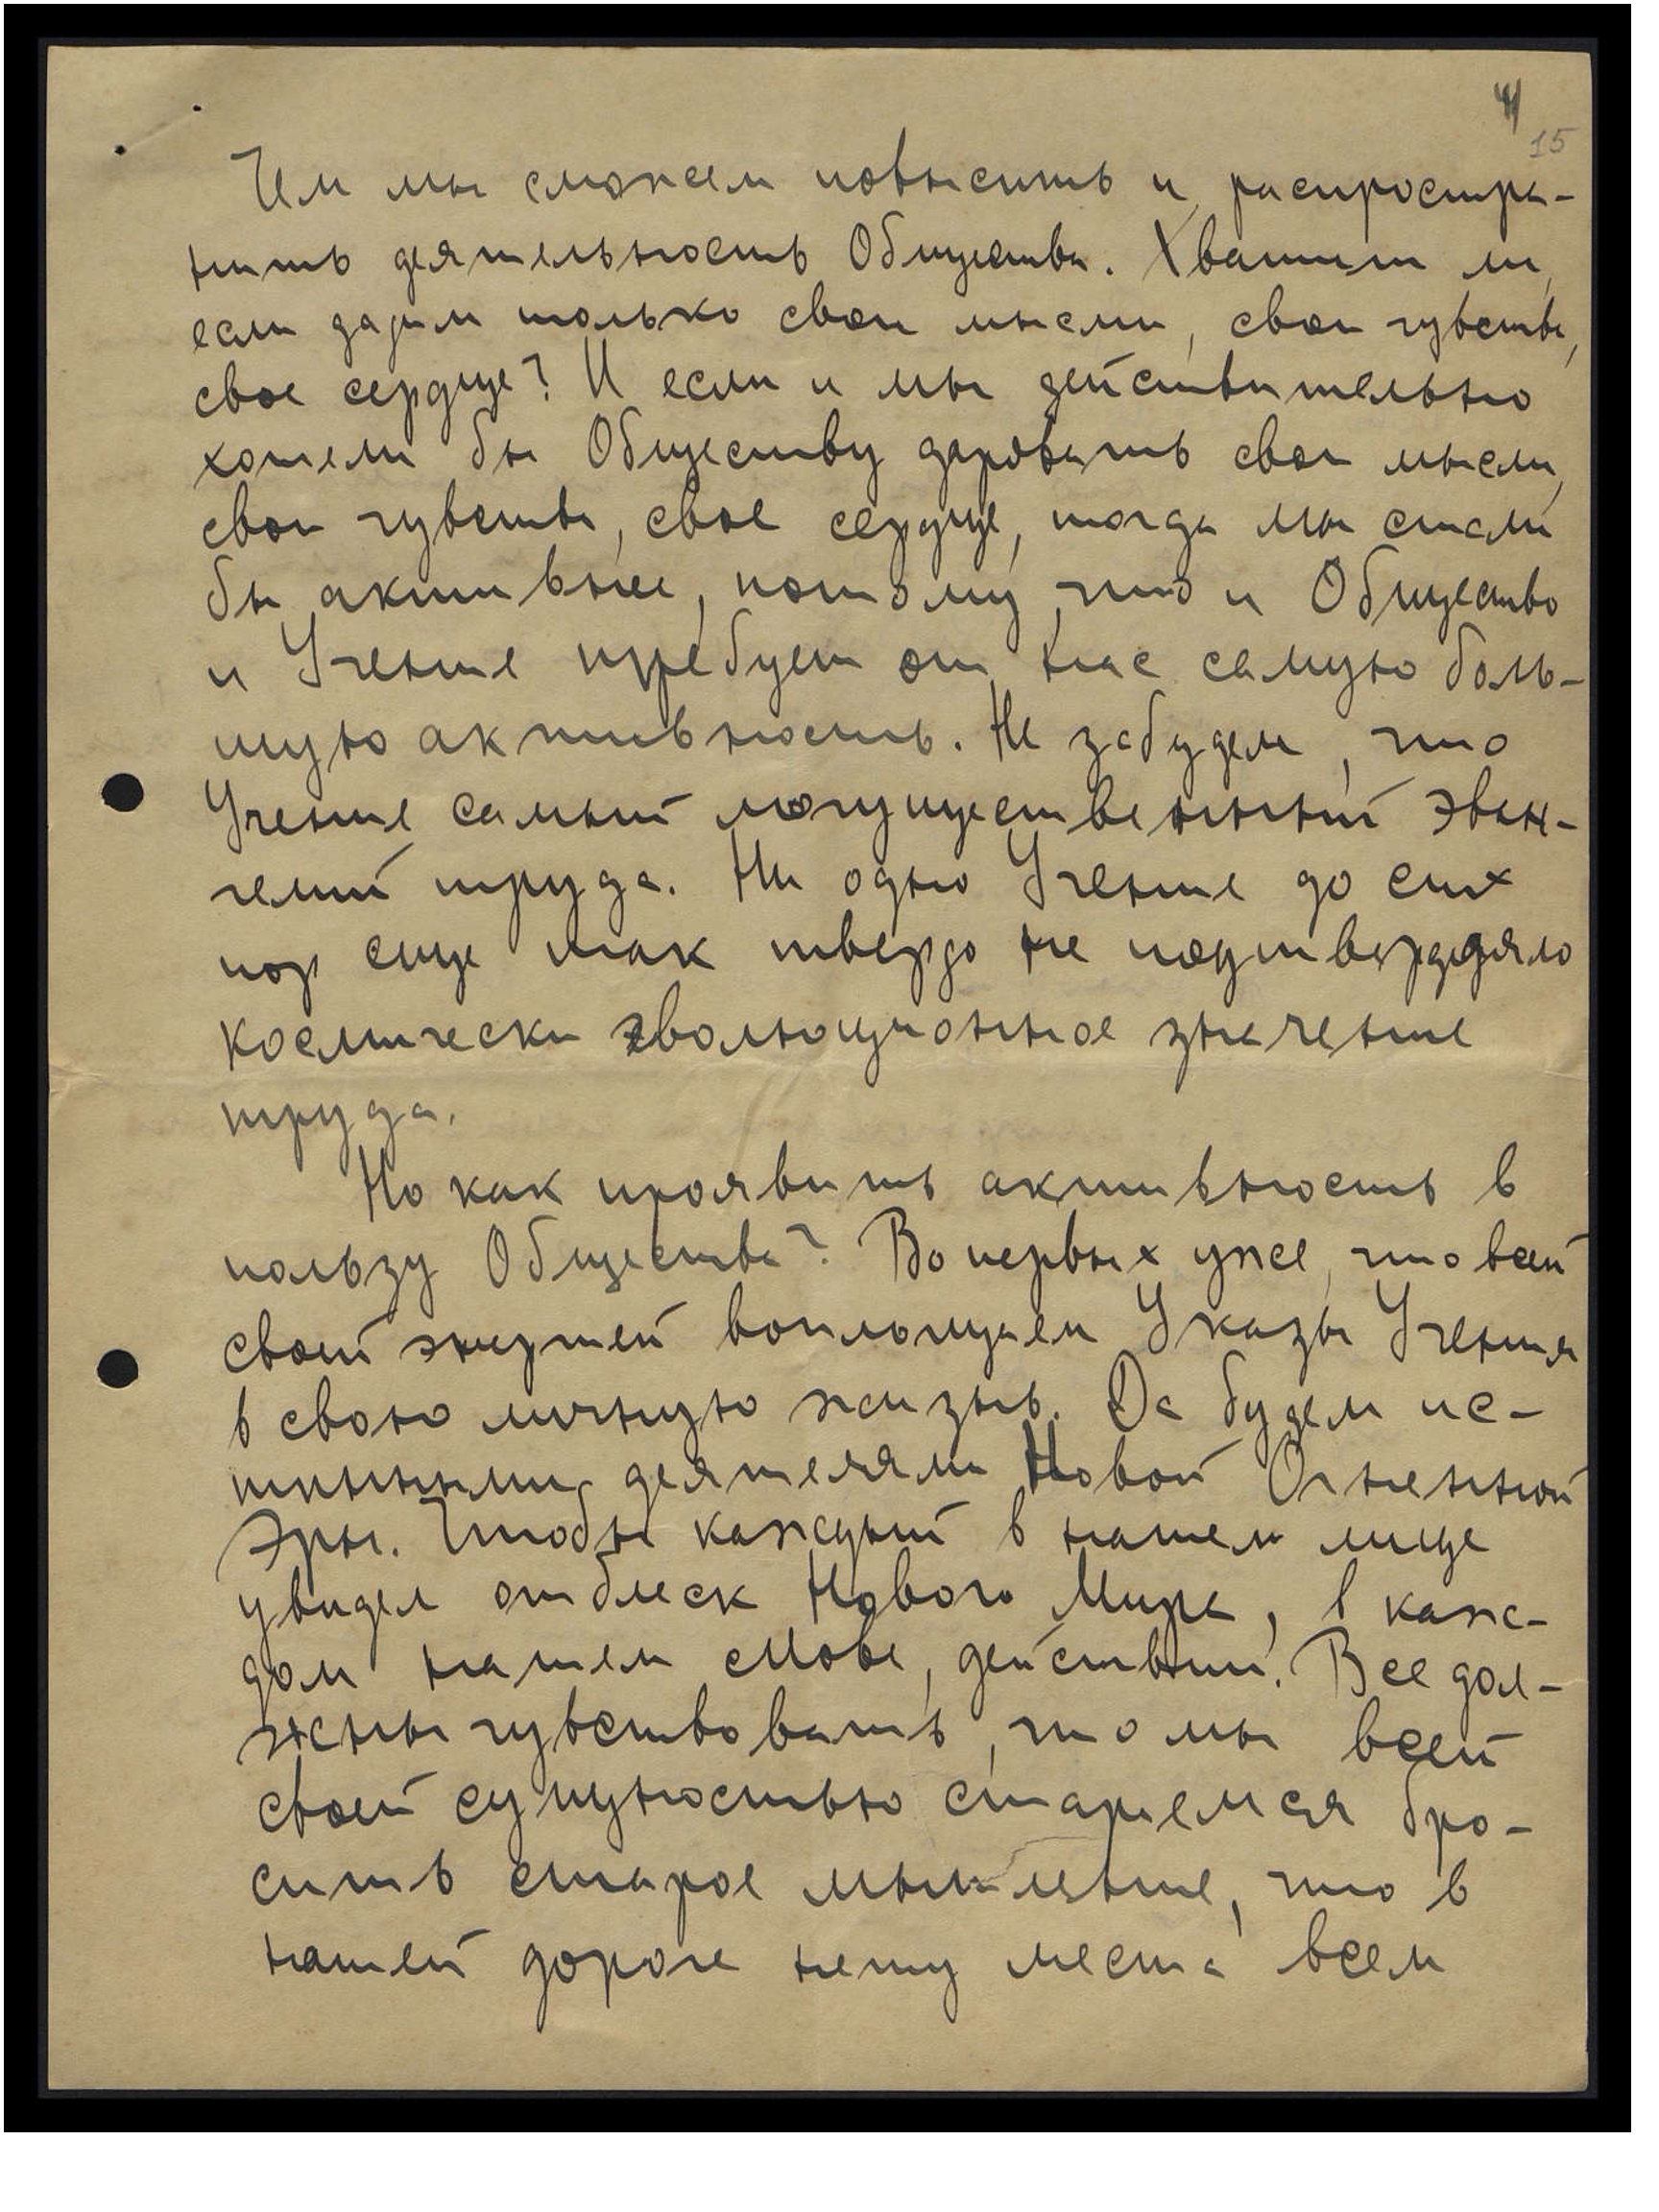 15
Чем мы сможем повысить и распростра-
нить деятельность Общества. Хватит ли,
если дадим только свои мысли, свои чувства,
свое сердце? И если и мы действительно
хотели бы Обществу даровать свои мысли,
свои чувства, свое сердце, тогда мы стали
бы активнее, потому что и Общество
и Учение требует от нас самую боль-
шую активность. Не забудем, что
Учение самый могущественный эван-
гелий труда. Ни одно Учение до сих
пор еще так твердо не подтверждало
космически эволюционное значение
труда.
Но как проявить активность в
пользу Общества? Во первых уже, что всей
своей энергией воплощаем Указы Учения
в свою личную жизнь. Да будем ис-
тинными деятелями Новой Огненной
Эры. Чтобы каждый в нашем лице
увидел отблеск Нового Мира, в каж-
дом нашем слове, действии. Все дол-
жны чувствовать, что мы всей
своей сущностью стараемся бро-
сить старое мышление, что в
нашей дороге нету места всем